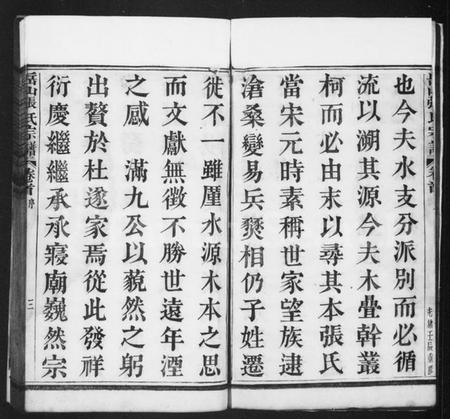 也今夫水支分派別而必循
流以溯其源今夫木疊幹叢
柯而必由末以尋其本張氏
當宋元時素稱世家望族逮
滄桑變易兵燹相仍子姓遷
徙不一雖厪水源木本之思
而文獻無徵不勝世遠年湮
之感　滿九公以藐然之躬
出贅於杜遂家焉從此發祥
衍慶繼繼承承寢廟巍然宗
岳山張氏宗譜
卷首
序
三